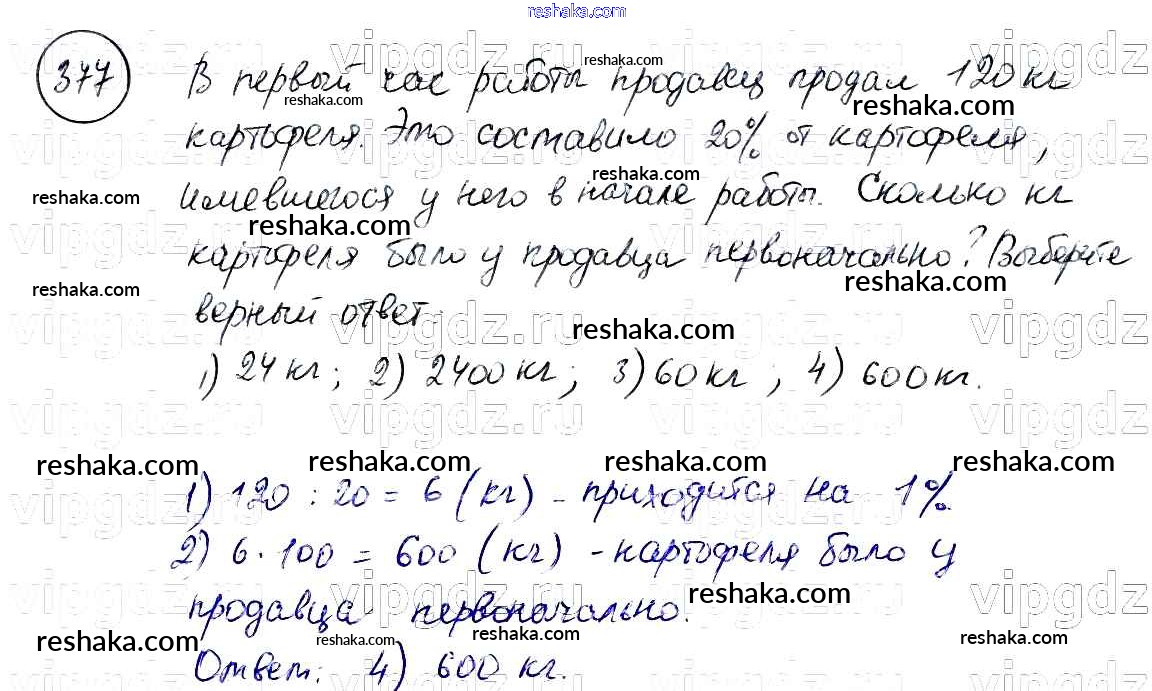 reshaka.com
377 В первый час работы продавец продал 120 кг
картофеля. Это составило 20% от картофеля,
имевшегося у него в начале работы. Сколько кг
картофеля было у продавца первоначально? Выберите
верный ответ.
1) 24 кг; 2) 2400 кг; 3) 60 кг; 4) 600 кг.
1) 120 : 20 = 6 (кг) - приходится на 1%.
2) 6 · 100 = 600 (кг) - картофеля было у
продавца первоначально.
Ответ: 4) 600 кг.